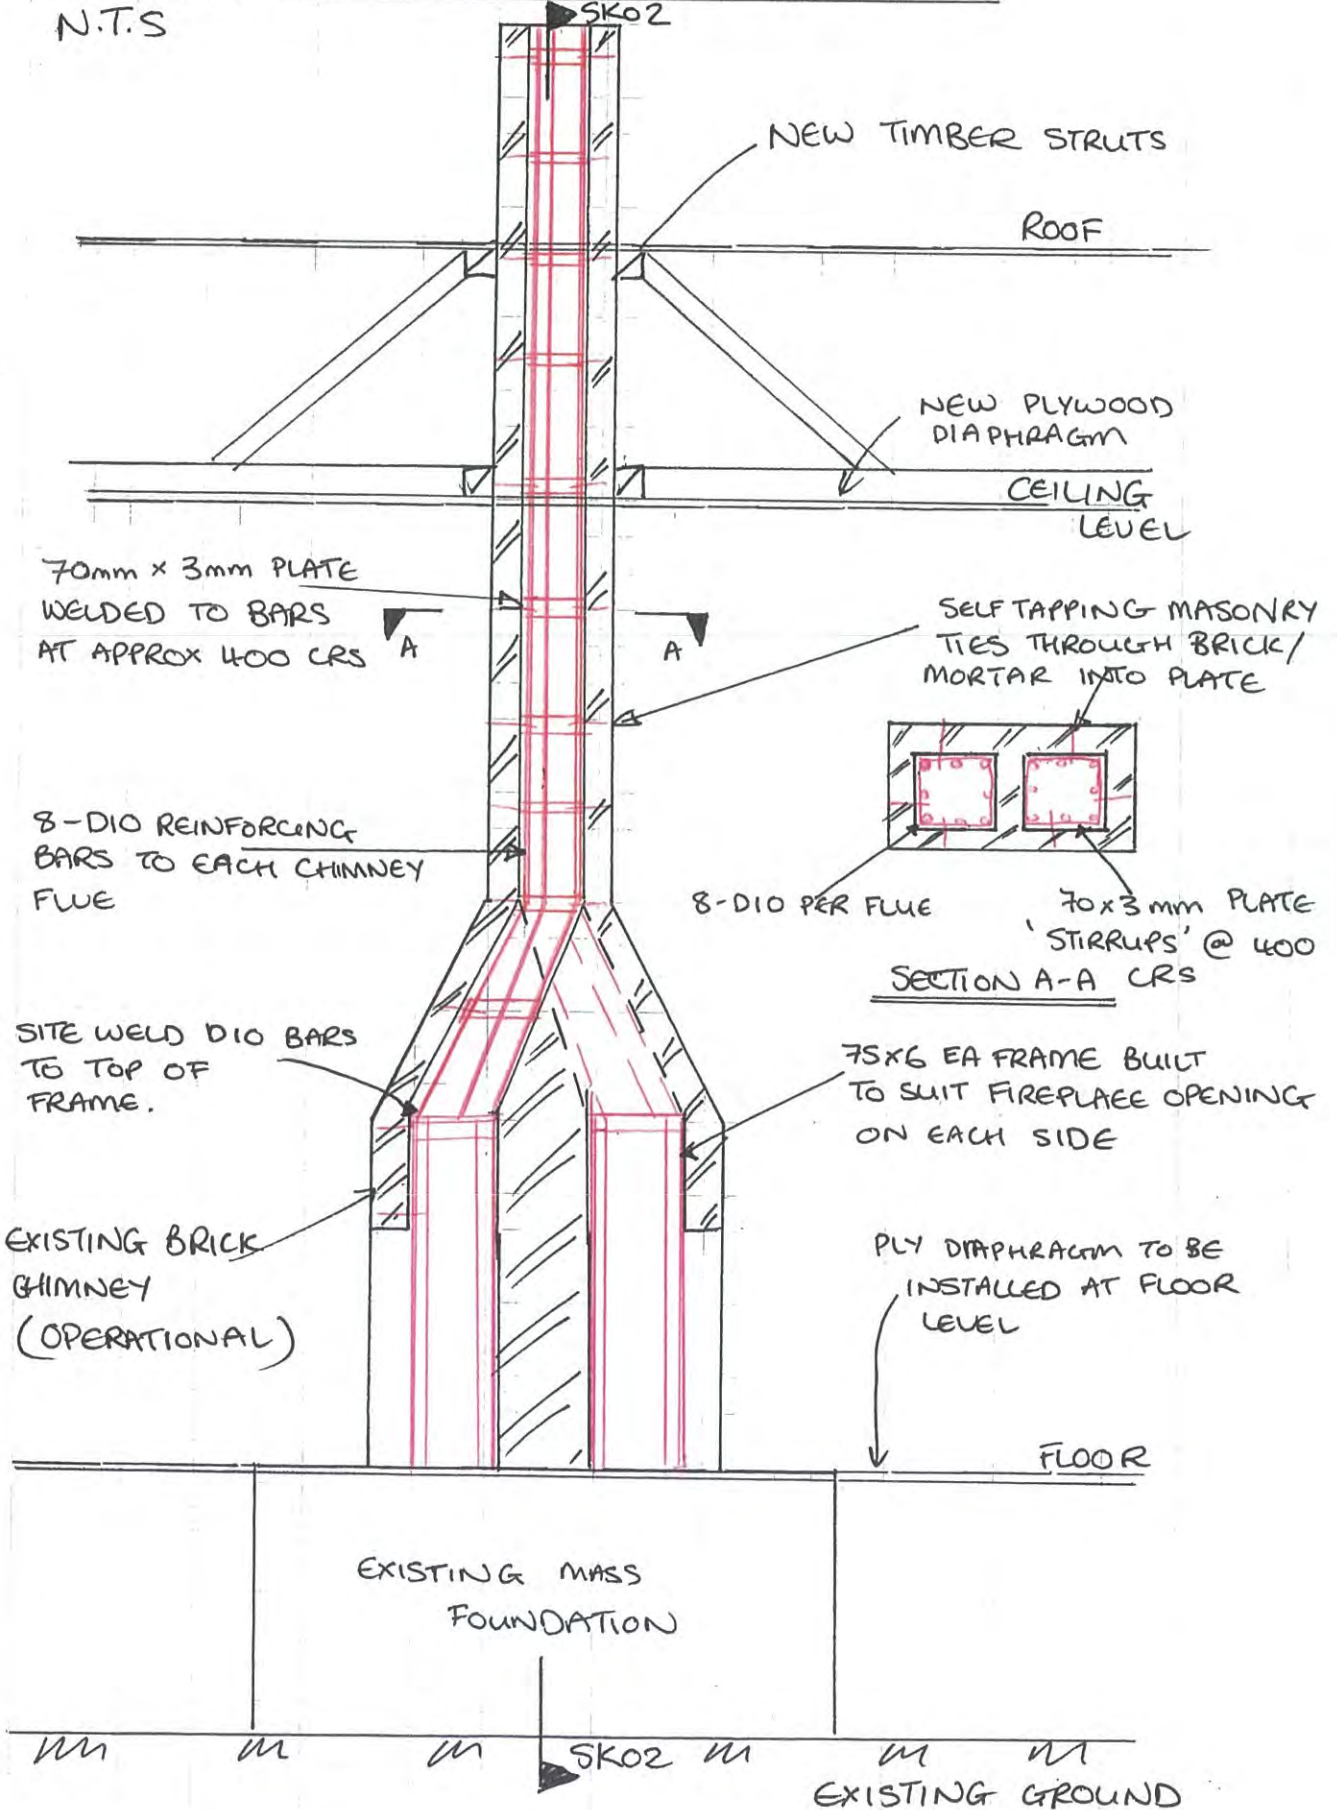 SK02
N.T.S
NEW TIMBER STRUTS
ROOF
NEW PLYWOOD
DIAPHRAGM
CEILING
LEVEL
70mm x 3mm PLATE
WELDED TO BARS
AT APPROX 400 CRS
A
A
SELF TAPPING MASONRY
TIES THROUGH BRICK/
MORTAR INTO PLATE
8-D10 REINFORCING
BARS TO EACH CHIMNEY
FLUE
8-D10 PER FLUE
70x3mm PLATE
'STIRRUPS' @ 400
CRS
SECTION A-A
SITE WELD D10 BARS
TO TOP OF
FRAME.
75x6 EA FRAME BUILT
TO SUIT FIREPLACE OPENING
ON EACH SIDE
EXISTING BRICK
CHIMNEY
(OPERATIONAL)
PLY DIAPHRAGM TO BE
INSTALLED AT FLOOR
LEVEL
FLOOR
EXISTING MASS
FOUNDATION
SK02
EXISTING GROUND